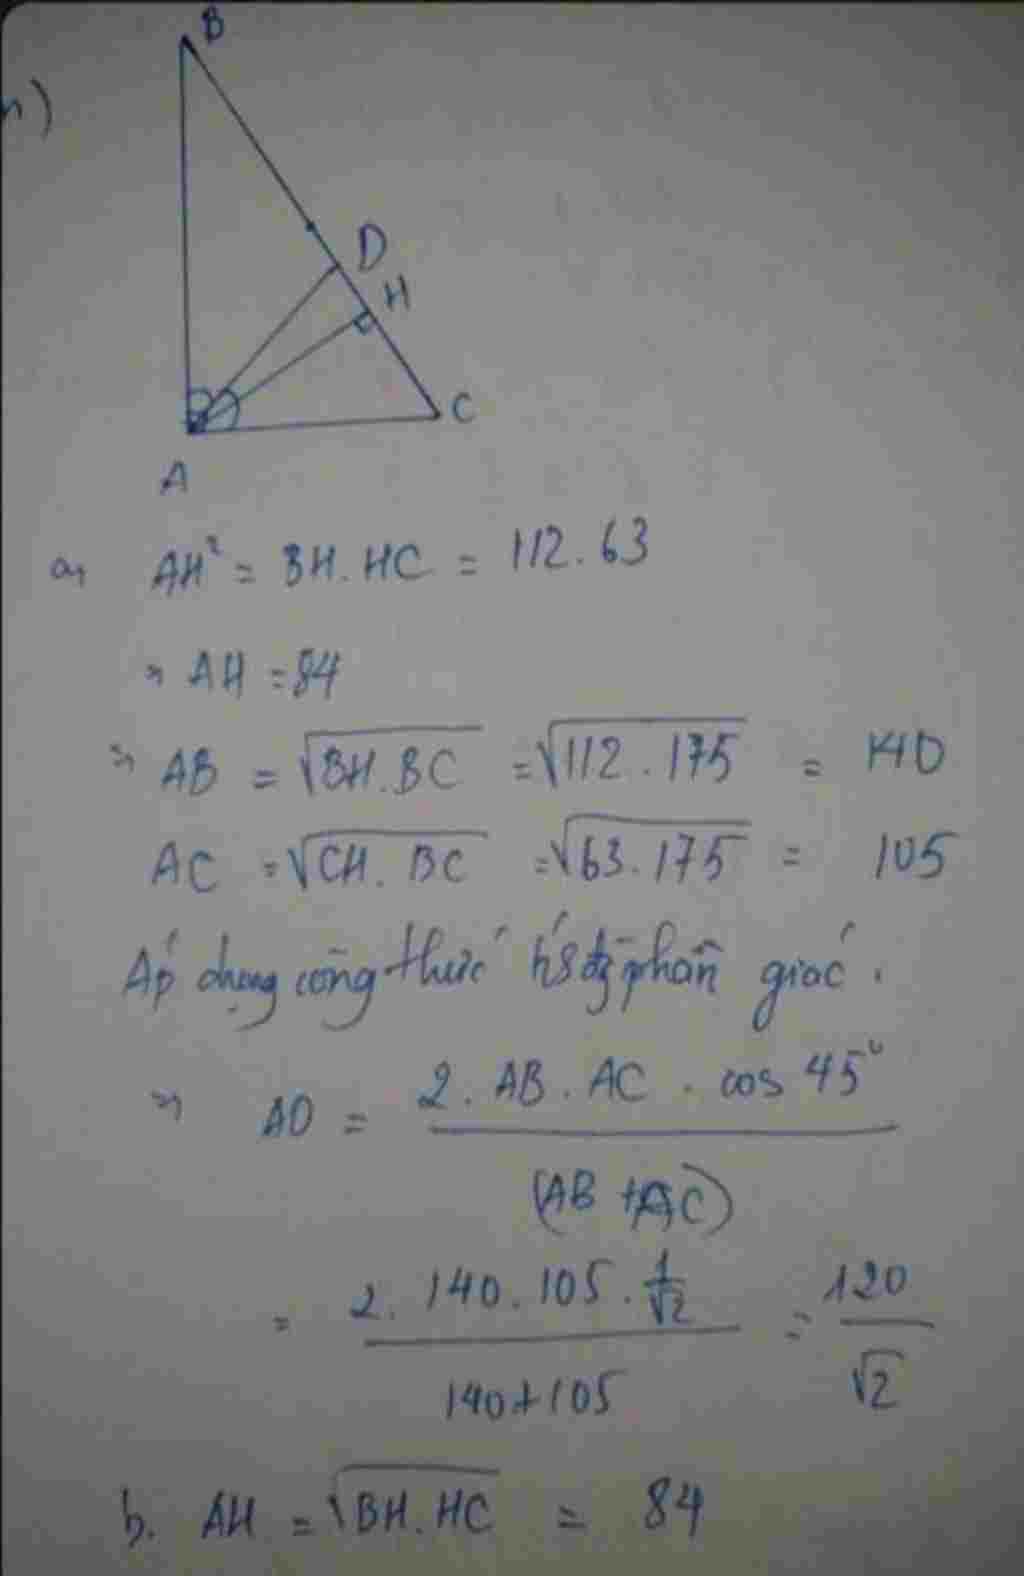 B
D
H
C
A
a, AH² = BH.HC = 112.63
⇒ AH = 84
⇒ AB = √BH.BC = √112.175 = 140
AC = √CH.BC = √63.175 = 105
Áp dụng công thức phân giác.
⇒ AD = 2.AB.AC.cos 45° / (AB + AC)
= 2.140.105.1/√2 / 140+105 = 120/√2
b. AH = √BH.HC = 84